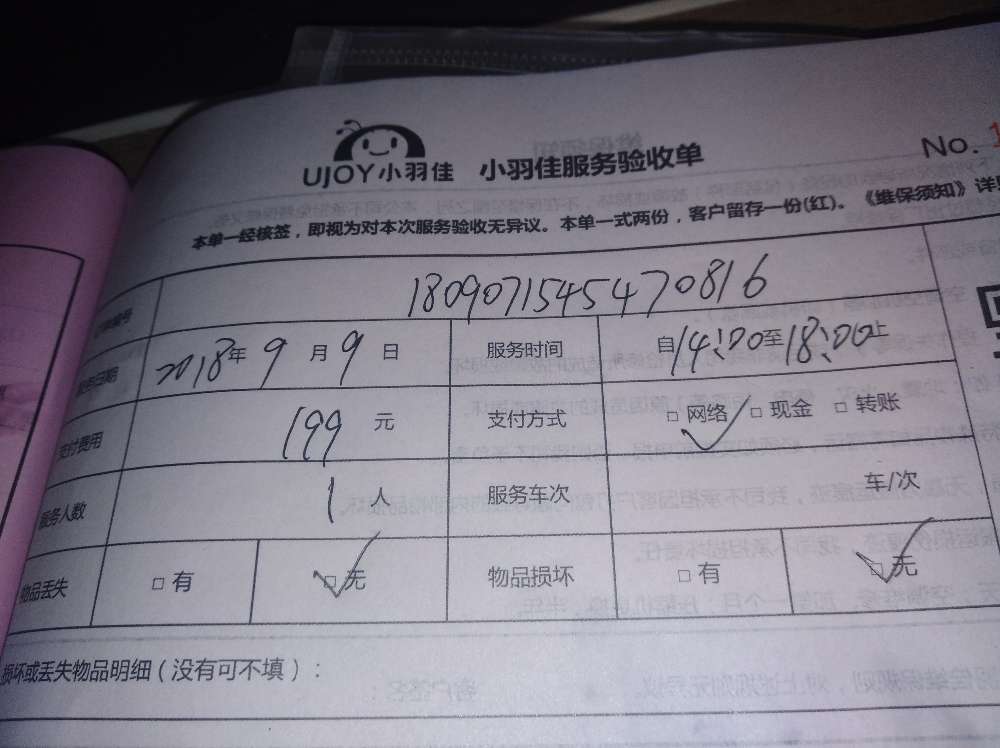 UJOY小羽佳 小羽佳服务验收单 No.
本单一经核签，即视为对本次服务验收无异议。本单一式两份，客户留存一份(红)。《维保须知》详
编号 1809071545470816
日期 2018年9月9日 服务时间 自14:00至18:00止
支付费用 199元 支付方式 □网络 □现金 □转账
服务人数 1人 服务车次 车/次
物品丢失 □有 □无 物品损坏 □有 □无
损坏或丢失物品明细(没有可不填)：